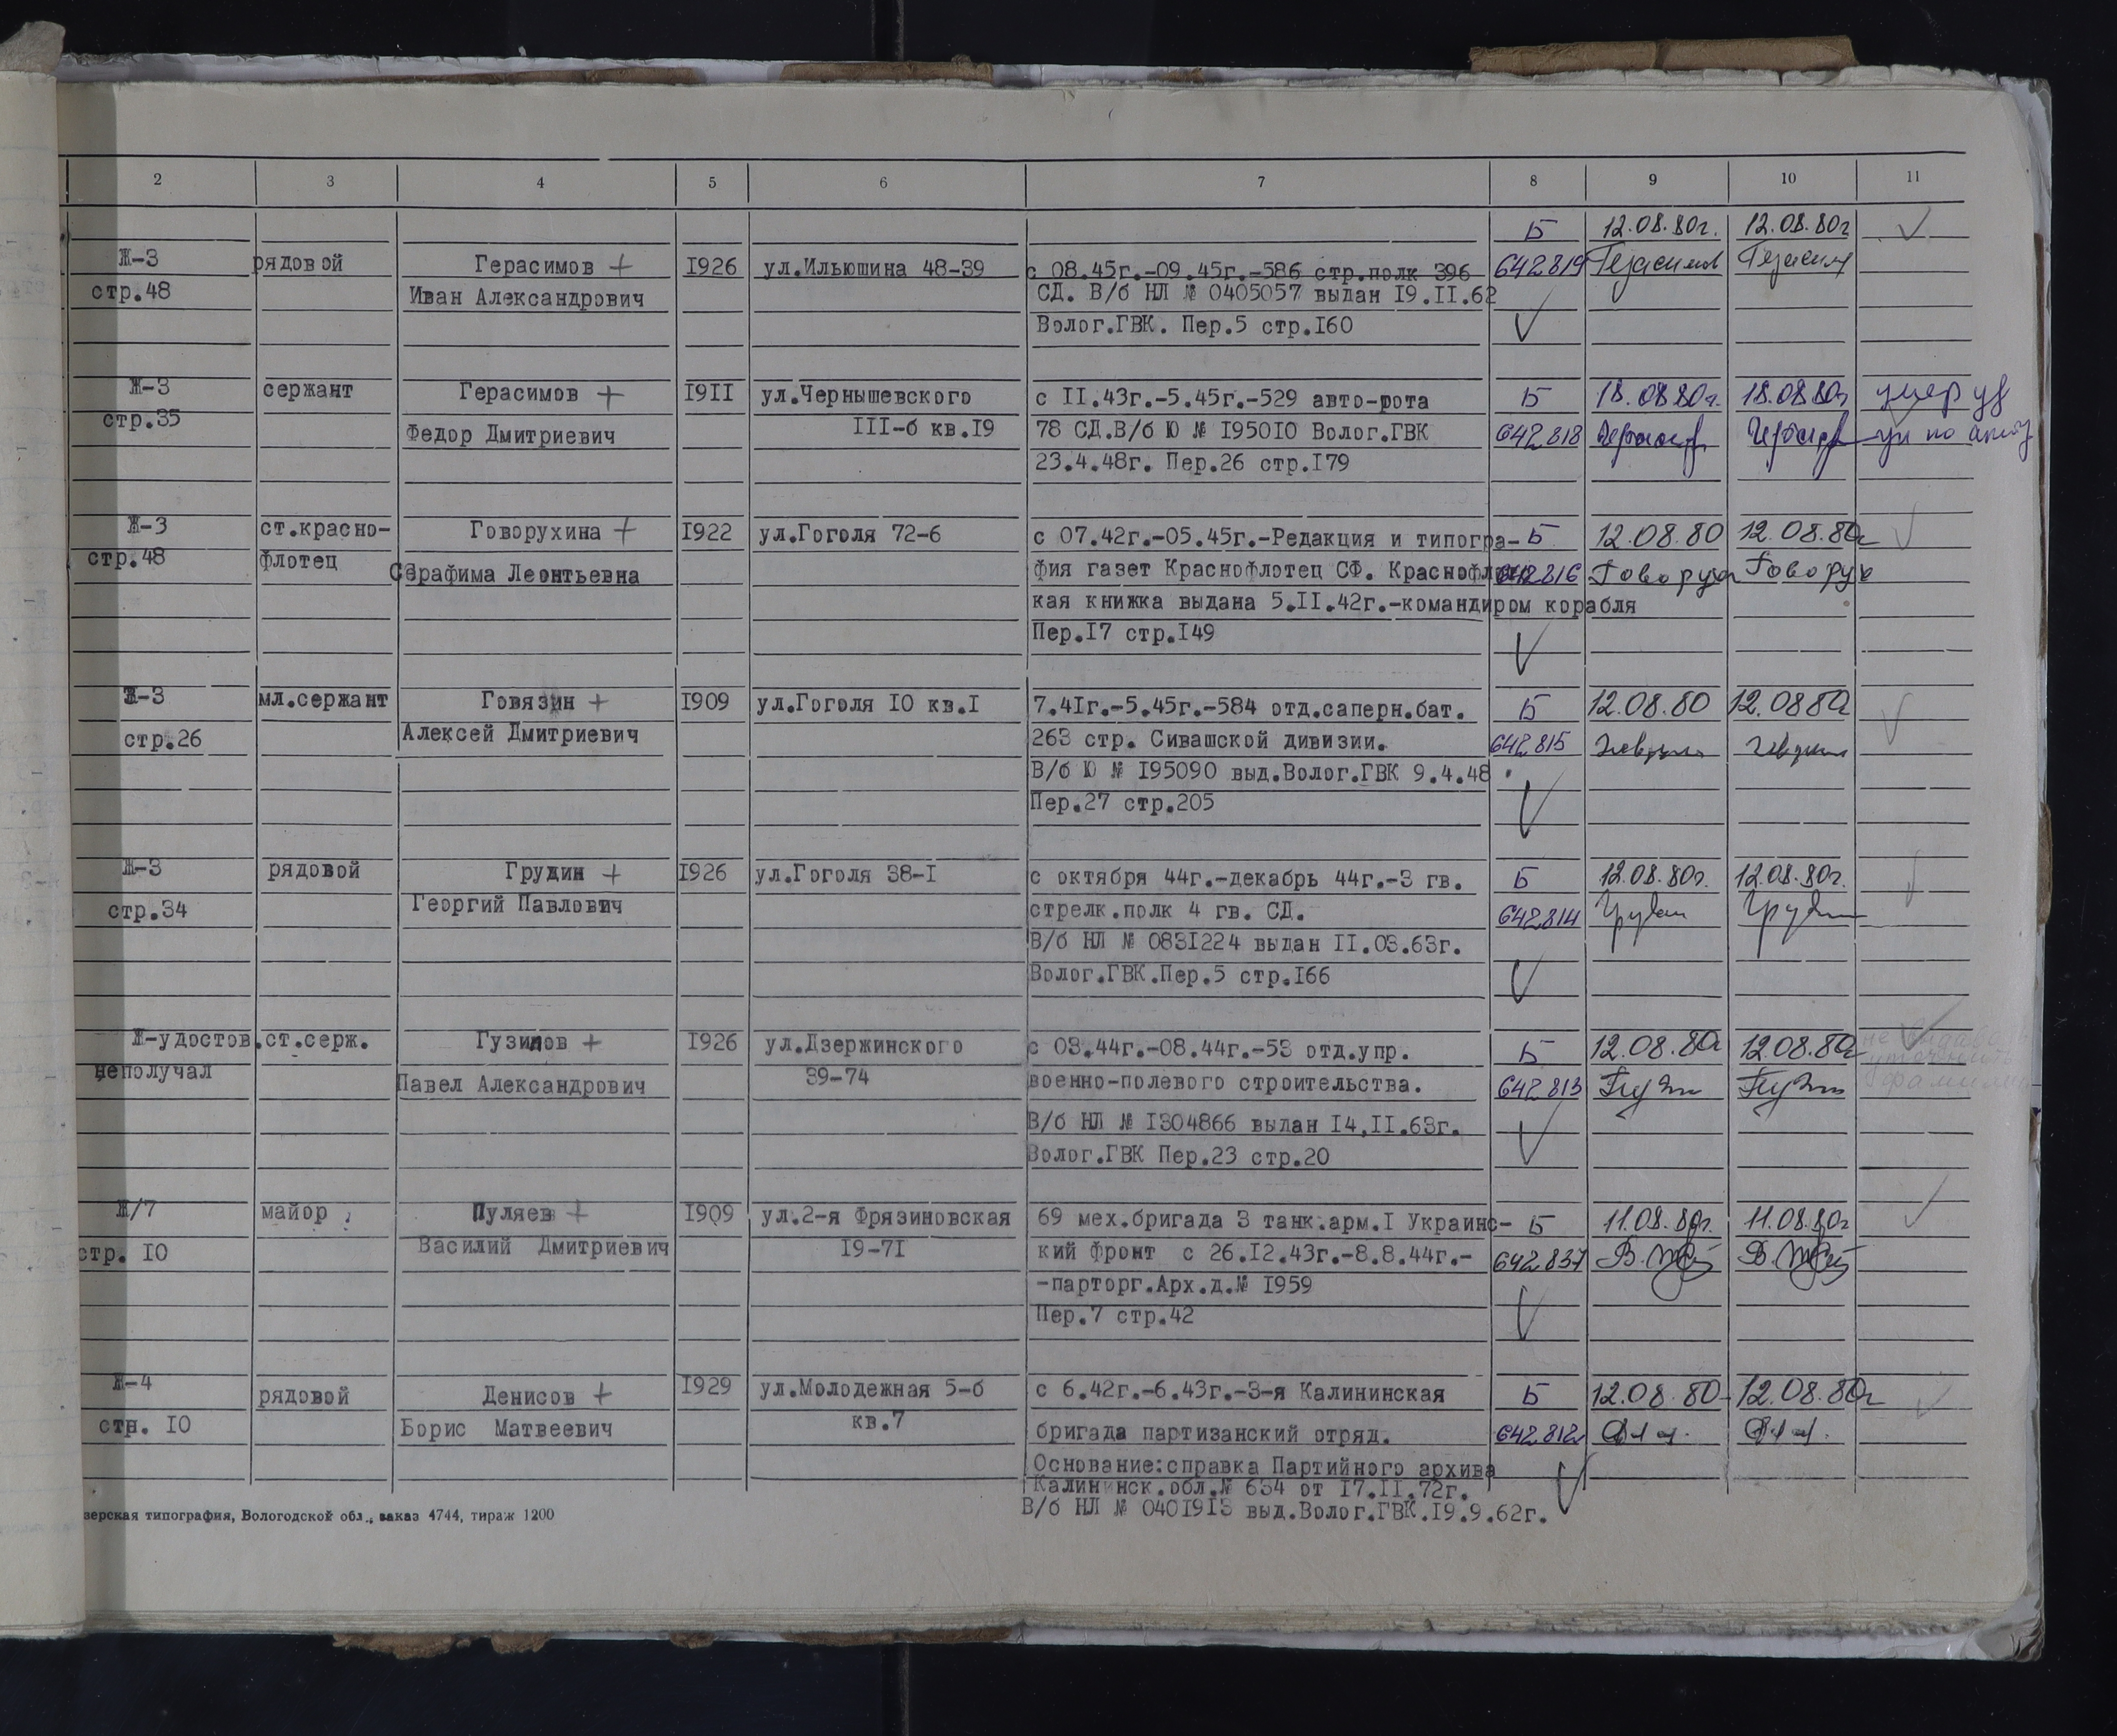 2 3 4 5 6 7 8 9 10 11
Б 12.08.80г. 12.08.80г
Ж-3 рядовой Герасимов + I926 ул.Ильюшина 48-39 с 08.45г.-09.45г.-586 стр.полк 396 642819 Герасимов Герасим
стр.48 Иван Александрович СД. В/б НЛ № 0405057 выдан I9.II.62
Волог.ГВК. Пер.5 стр.I60
Ж-3 сержант Герасимов + I9II ул.Чернышевского с II.43г.-5.45г.-529 авто-рота Б 18.08.80г. 18.08.80г умер
стр.35 Федор Дмитриевич III-б кв.I9 78 СД.В/б Ю № I950I0 Волог.ГВК 642818
23.4.48г. Пер.26 стр.I79
Ж-3 ст.красно- Говорухина + I922 ул.Гоголя 72-6 с 07.42г.-05.45г.-Редакция и типогра- Б 12.08.80 12.08.80г
стр.48 флотец Серафима Леонтьевна фия газет Краснофлотец СФ. Краснофлотс 642816 Говорух Говорух
кая книжка выдана 5.II.42г.-командиром корабля
Пер.I7 стр.I49
Ж-3 мл.сержант Говязин + I909 ул.Гоголя I0 кв.I 7.4Iг.-5.45г.-584 отд.саперн.бат. Б 12.08.80 12.08.80г
стр.26 Алексей Дмитриевич 263 стр. Сивашской дивизии. 642815
В/б Ю № I95090 выд.Волог.ГВК 9.4.48
Пер.27 стр.205
Ж-3 рядовой Грудин + I926 ул.Гоголя 38-I с октября 44г.-декабрь 44г.-3 гв. Б 12.08.80г. 12.08.80г.
стр.34 Георгий Павлович стрелк.полк 4 гв. СД. 642814 Грудин Грудин
В/б НЛ № 083I224 выдан II.03.63г.
Волог.ГВК.Пер.5 стр.I66
Ж-удостов. ст.серж. Гузилов + I926 ул.Дзержинского с 03.44г.-08.44г.-53 отд.упр. Б 12.08.80г 12.08.80г
неполучал Павел Александрович 39-74 военно-полевого строительства. 642813
В/б НЛ № I304866 выдан I4.II.63г.
Волог.ГВК Пер.23 стр.20
Ж/7 майор Пуляев + I909 ул.2-я Фрязиновская 69 мех.бригада 3 танк.арм.I Украинс- Б 11.08.80г. 11.08.80г
стр. I0 Василий Дмитриевич I9-7I кий фронт с 26.I2.43г.-8.8.44г.- 642837
-парторг.Арх.д.№ I959
Пер.7 стр.42
Ж-4 рядовой Денисов + I929 ул.Молодежная 5-б с 6.42г.-6.43г.-3-я Калининская Б 12.08.80 12.08.80г
стн. I0 Борис Матвеевич кв.7 бригада партизанский отряд. 642812
Основание:справка Партийного архива
Калининск.обл.№ 634 от I7.II.72г.
В/б НЛ № 040I9I3 выд.Волог.ГВК.I9.9.62г.
зерская типография, Вологодской обл., заказ 4744, тираж 1200